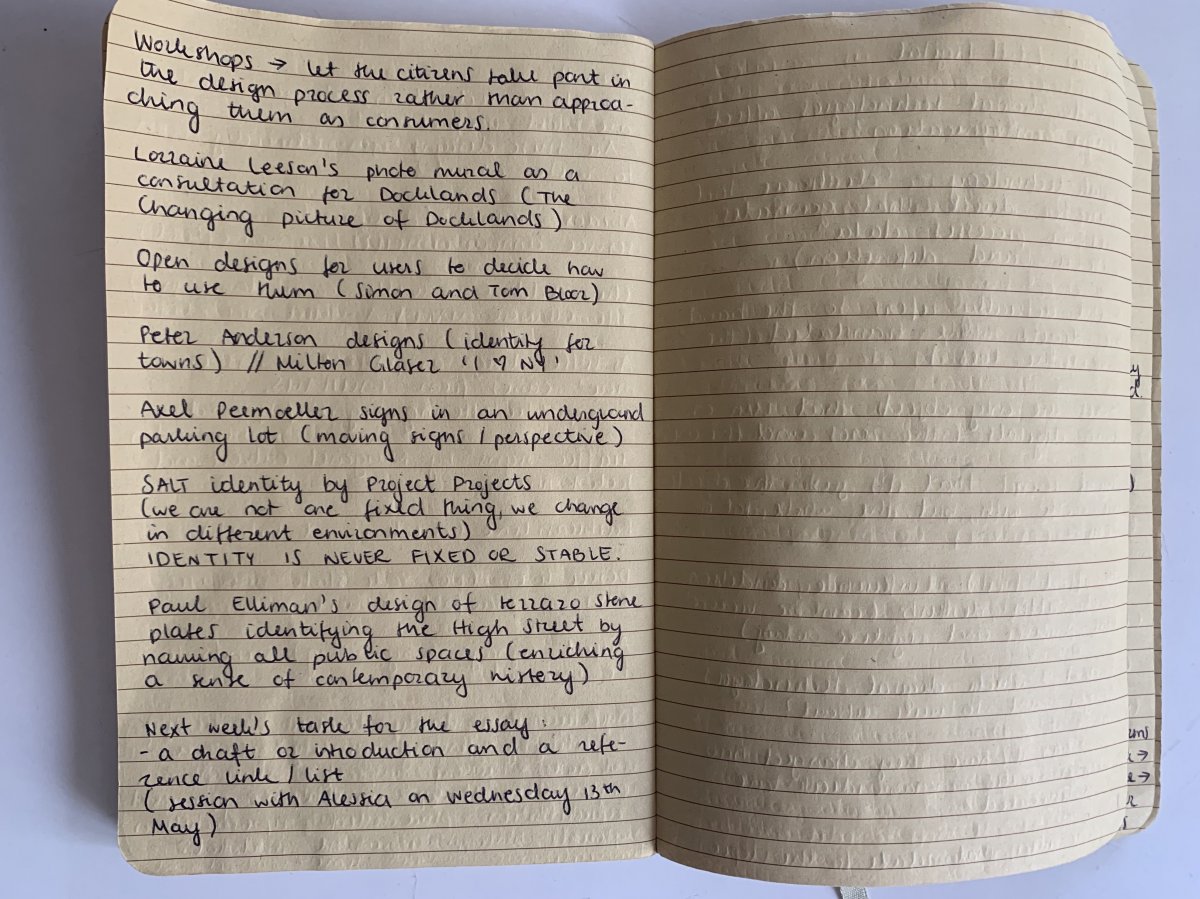 Workshops → let the citizens take part in
the design process rather than approa-
ching them as consumers.
Lorraine Leeson's photo mural as a
consultation for Docklands (The
Changing picture of Docklands)
Open designs for users to decide how
to use them (Simon and Tom Bloor)
Peter Anderson designs (identity for
towns) // Milton Glaser 'I ♡ NY'
Axel Peemoeller signs in an underground
parking lot (moving signs / perspective)
SALT identity by Project Projects
(we are not one fixed thing, we change
in different environments)
IDENTITY IS NEVER FIXED OR STABLE.
Paul Elliman's design of terrazo stone
plates identifying the High Street by
naming all public spaces (enriching
a sense of contemporary history)
Next week's task for the essay:
- a draft or introduction and a refe-
rence link / list
(session with Alessia on Wednesday 13th
May)